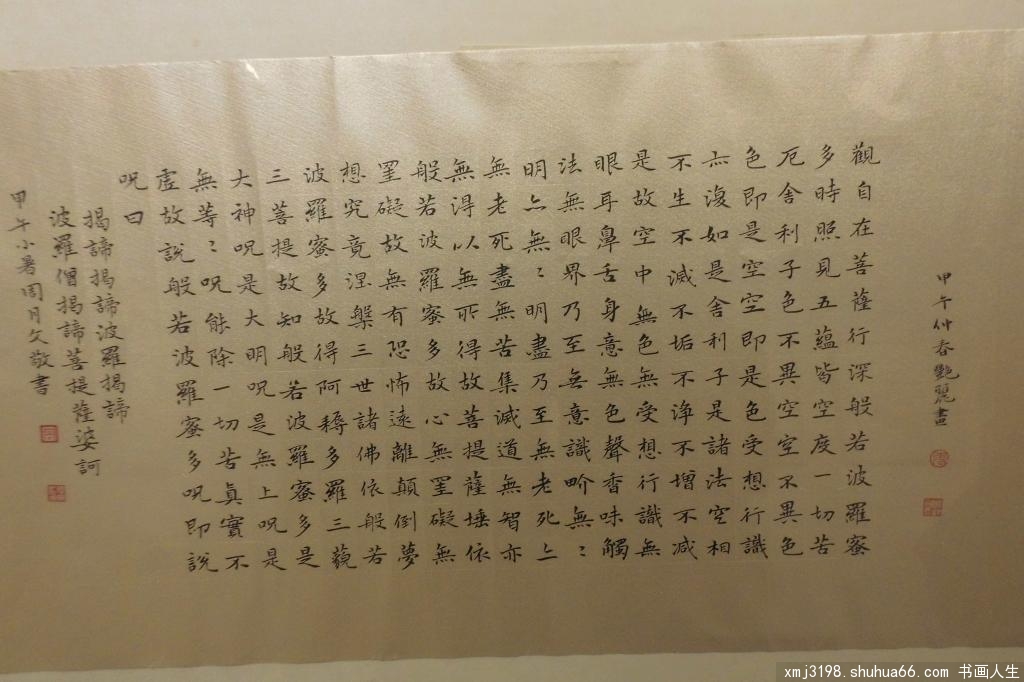 甲午仲春艷麗畫
觀自在菩薩行深般若波羅蜜
多時照見五蘊皆空度一切苦
厄舍利子色不異空空不異色
色即是空空即是色受想行識
亦復如是舍利子是諸法空相
不生不滅不垢不淨不增不減
是故空中無色無受想行識無
眼耳鼻舌身意無色聲香味觸
法無眼界乃至無意識界無〻
明亦無〻明盡乃至無老死亦
無老死盡無苦集滅道無智亦
無得以無所得故菩提薩埵依
般若波羅蜜多故心無罣礙無
罣礙故無有恐怖遠離顛倒夢
想究竟涅槃三世諸佛依般若
波羅蜜多故得阿耨多羅三藐
三菩提故知般若波羅蜜多是
大神呪是大明呪是無上呪是
無等〻呪能除一切苦真實不
虛故說般若波羅蜜多呪即說
呪曰
揭諦揭諦波羅揭諦
波羅僧揭諦菩提薩婆訶
甲午小暑周月文敬書
xmj3198.shuhua66.com 书画人生